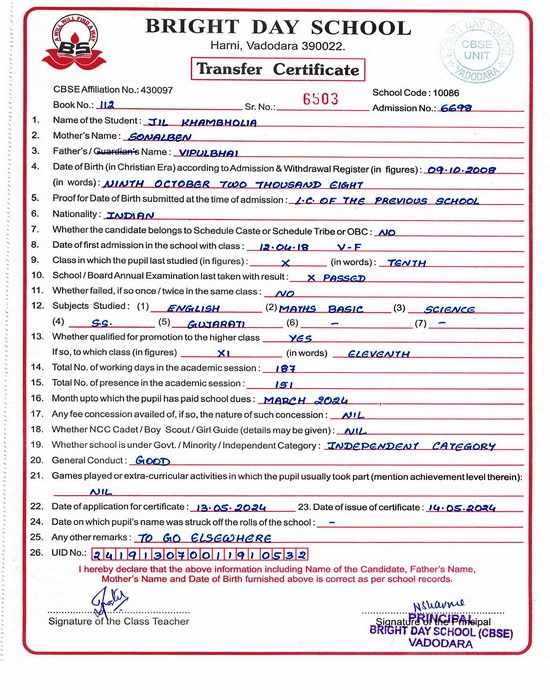 A WILL WILL FIND A WAY
BS
BRIGHT DAY SCHOOL
Harni, Vadodara 390022.
Transfer Certificate
BRIGHT DAY SCHOOL
CBSE
UNIT
VADODARA
CBSE Affiliation No.: 430097
School Code : 10086
Book No.: 112 Sr. No.: 6503 Admission No.: 6698
1. Name of the Student : JIL KHAMBHOLIA
2. Mother's Name : SONALBEN
3. Father's / Guardian's Name : VIPULBHAI
4. Date of Birth (in Christian Era) according to Admission & Withdrawal Register (in figures) : 09.10.2008
(in words) : NINTH OCTOBER TWO THOUSAND EIGHT
5. Proof for Date of Birth submitted at the time of admission : L.C. OF THE PREVIOUS SCHOOL
6. Nationality : INDIAN
7. Whether the candidate belongs to Schedule Caste or Schedule Tribe or OBC : NO
8. Date of first admission in the school with class : 12.04.18 V-F
9. Class in which the pupil last studied (in figures) : X (in words) : TENTH
10. School / Board Annual Examination last taken with result : X PASSED
11. Whether failed, if so once / twice in the same class : NO
12. Subjects Studied : (1) ENGLISH (2) MATHS BASIC (3) SCIENCE
(4) SS. (5) GUJARATI (6) – (7) –
13. Whether qualified for promotion to the higher class YES
If so, to which class (in figures) XI (in words) ELEVENTH
14. Total No. of working days in the academic session : 187
15. Total No. of presence in the academic session : 151
16. Month upto which the pupil has paid school dues : MARCH 2024
17. Any fee concession availed of, if so, the nature of such concession : NIL
18. Whether NCC Cadet / Boy Scout / Girl Guide (details may be given) : NIL
19. Whether school is under Govt. / Minority / Independent Category : INDEPENDENT CATEGORY
20. General Conduct : GOOD
21. Games played or extra-curricular activities in which the pupil usually took part (mention achievement level therein):
NIL
22. Date of application for certificate : 13.05.2024 23. Date of issue of certificate : 14.05.2024
24. Date on which pupil's name was struck off the rolls of the school : –
25. Any other remarks : TO GO ELSEWHERE
26. UID No.: 241913070011910532
I hereby declare that the above information including Name of the Candidate, Father's Name,
Mother's Name and Date of Birth furnished above is correct as per school records.
Signature of the Class Teacher
Signature of the Principal
PRINCIPAL
BRIGHT DAY SCHOOL (CBSE)
VADODARA